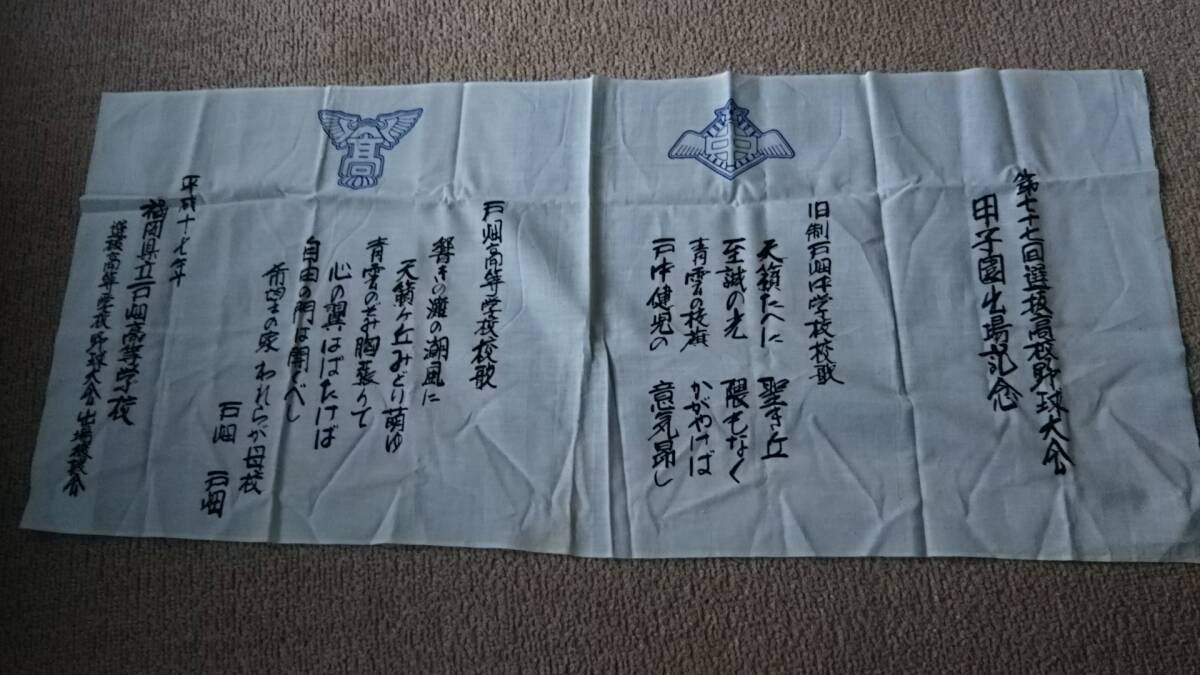 第七十七回選抜高校野球大会
甲子園出場記念
中
旧制戸畑中学校校歌
天籟たへに 聖き丘
至誠の光 隈もなく
青雲の校旗 かがやけば
戸中健児の 意気昂し
高
戸畑高等学校校歌
響きの灘の潮風に
天籟ヶ丘みどり萌ゆ
青雲のぞみ胸張りて
心の翼はばたけば
自由の門は開くべし
希望の泉 われらが母校
戸畑 戸畑
平成十七年
福岡県立戸畑高等学校
選抜高等学校野球大会出場後援会